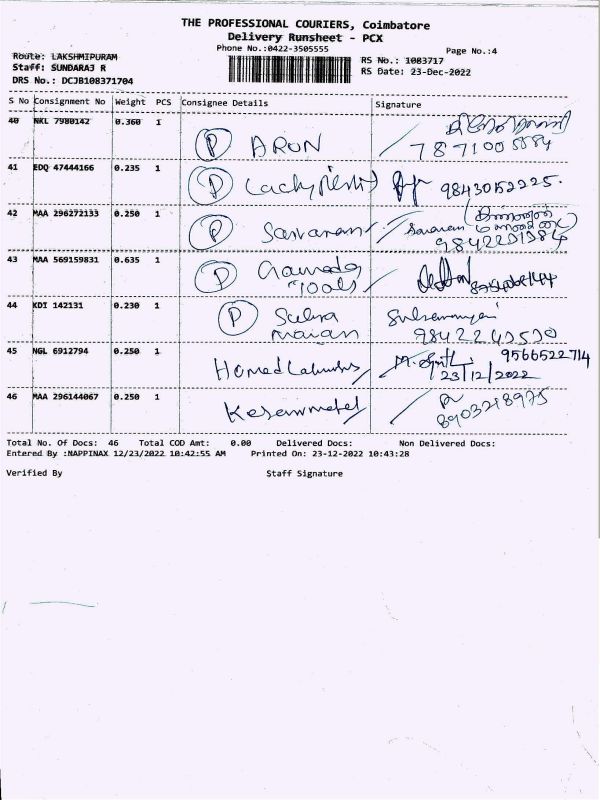 THE PROFESSIONAL COURIERS, Coimbatore
Delivery Runsheet - PCX
Phone No.:0422-3505555
Page No.:4
Route: LAKSHMIPURAM
Staff: SUNDARAJ R
DRS No.: DCJB108371704
RS No.: 1083717
RS Date: 23-Dec-2022
S No Consignment No Weight PCS Consignee Details Signature
40 NKL 7980142 0.360 1
P ARUN
7871005884
41 EDQ 47444166 0.235 1
P 9843052225.
42 MAA 296272133 0.250 1
P Saravanan Saravanan
43 MAA 569159831 0.635 1
P Tools
44 KDI 142131 0.230 1
P
45 NGL 6912794 0.250 1
9566522714
23/12/2022
46 MAA 296144067 0.250 1
8903218975
Total No. Of Docs: 46 Total COD Amt: 0.00 Delivered Docs: Non Delivered Docs:
Entered By :NAPPINAX 12/23/2022 10:42:55 AM Printed On: 23-12-2022 10:43:28
Verified By Staff Signature